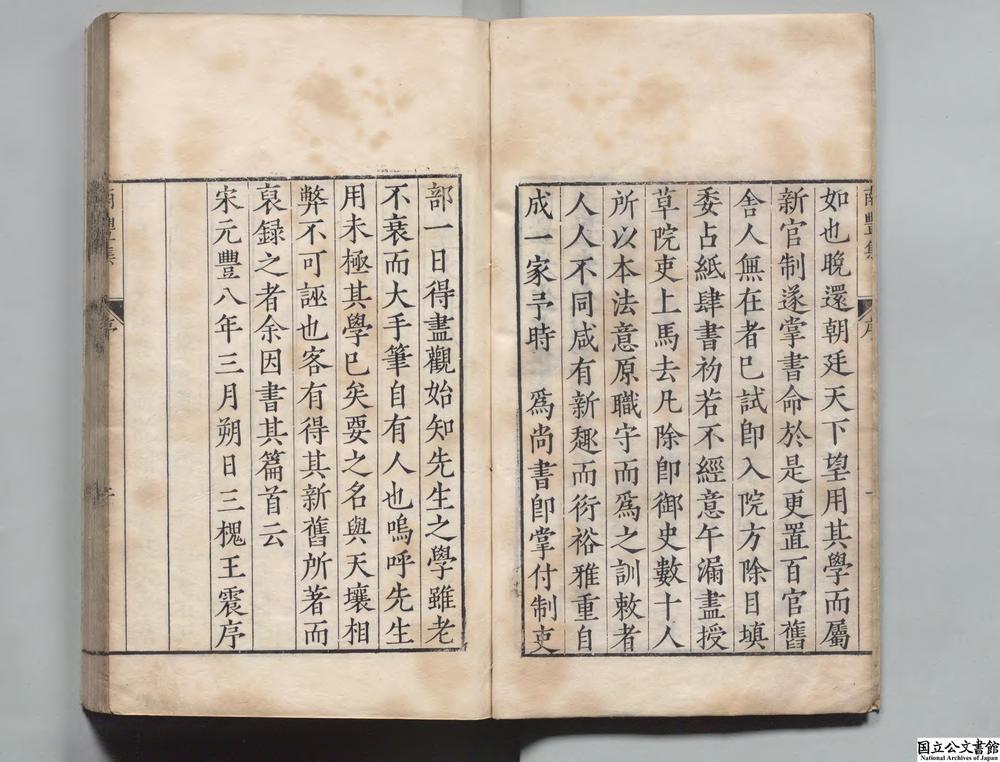 南豐集
序
如也晚還朝廷天下望用其學而屬
新官制遂掌書命於是更置百官舊
舍人無在者已試卽入院方除目填
委占紙肆書初若不經意午漏盡授
草院吏上馬去凡除卽御史數十人
所以本法意原職守而爲之訓敕者
人人不同咸有新趣而衍裕雅重自
成一家予時　爲尚書卽掌付制吏
部一日得盡觀始知先生之學雖老
不衰而大手筆自有人也嗚呼先生
用未極其學已矣要之名與天壤相
弊不可誣也客有得其新舊所著而
裒録之者余因書其篇首云
宋元豐八年三月朔日三槐王震序
南豐集
序
国立公文書館
National Archives of Japan